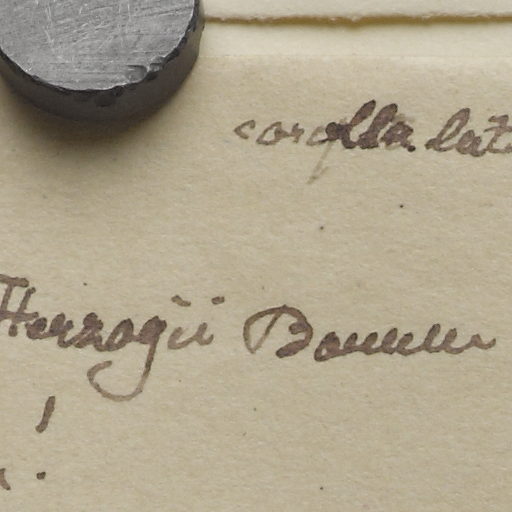 corolla lat
Herzogii Bommer
!